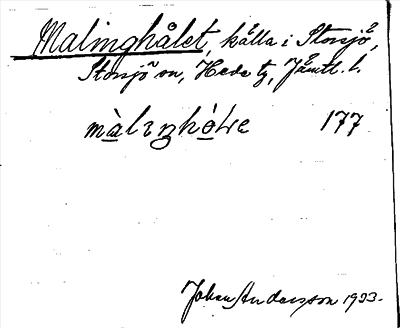 Malinghålet, källa i Storsjö,
Storsjö sn, Hede tg, Jämtl. l.
màlıŋhò̩le 177
Johan Andersson 1933.